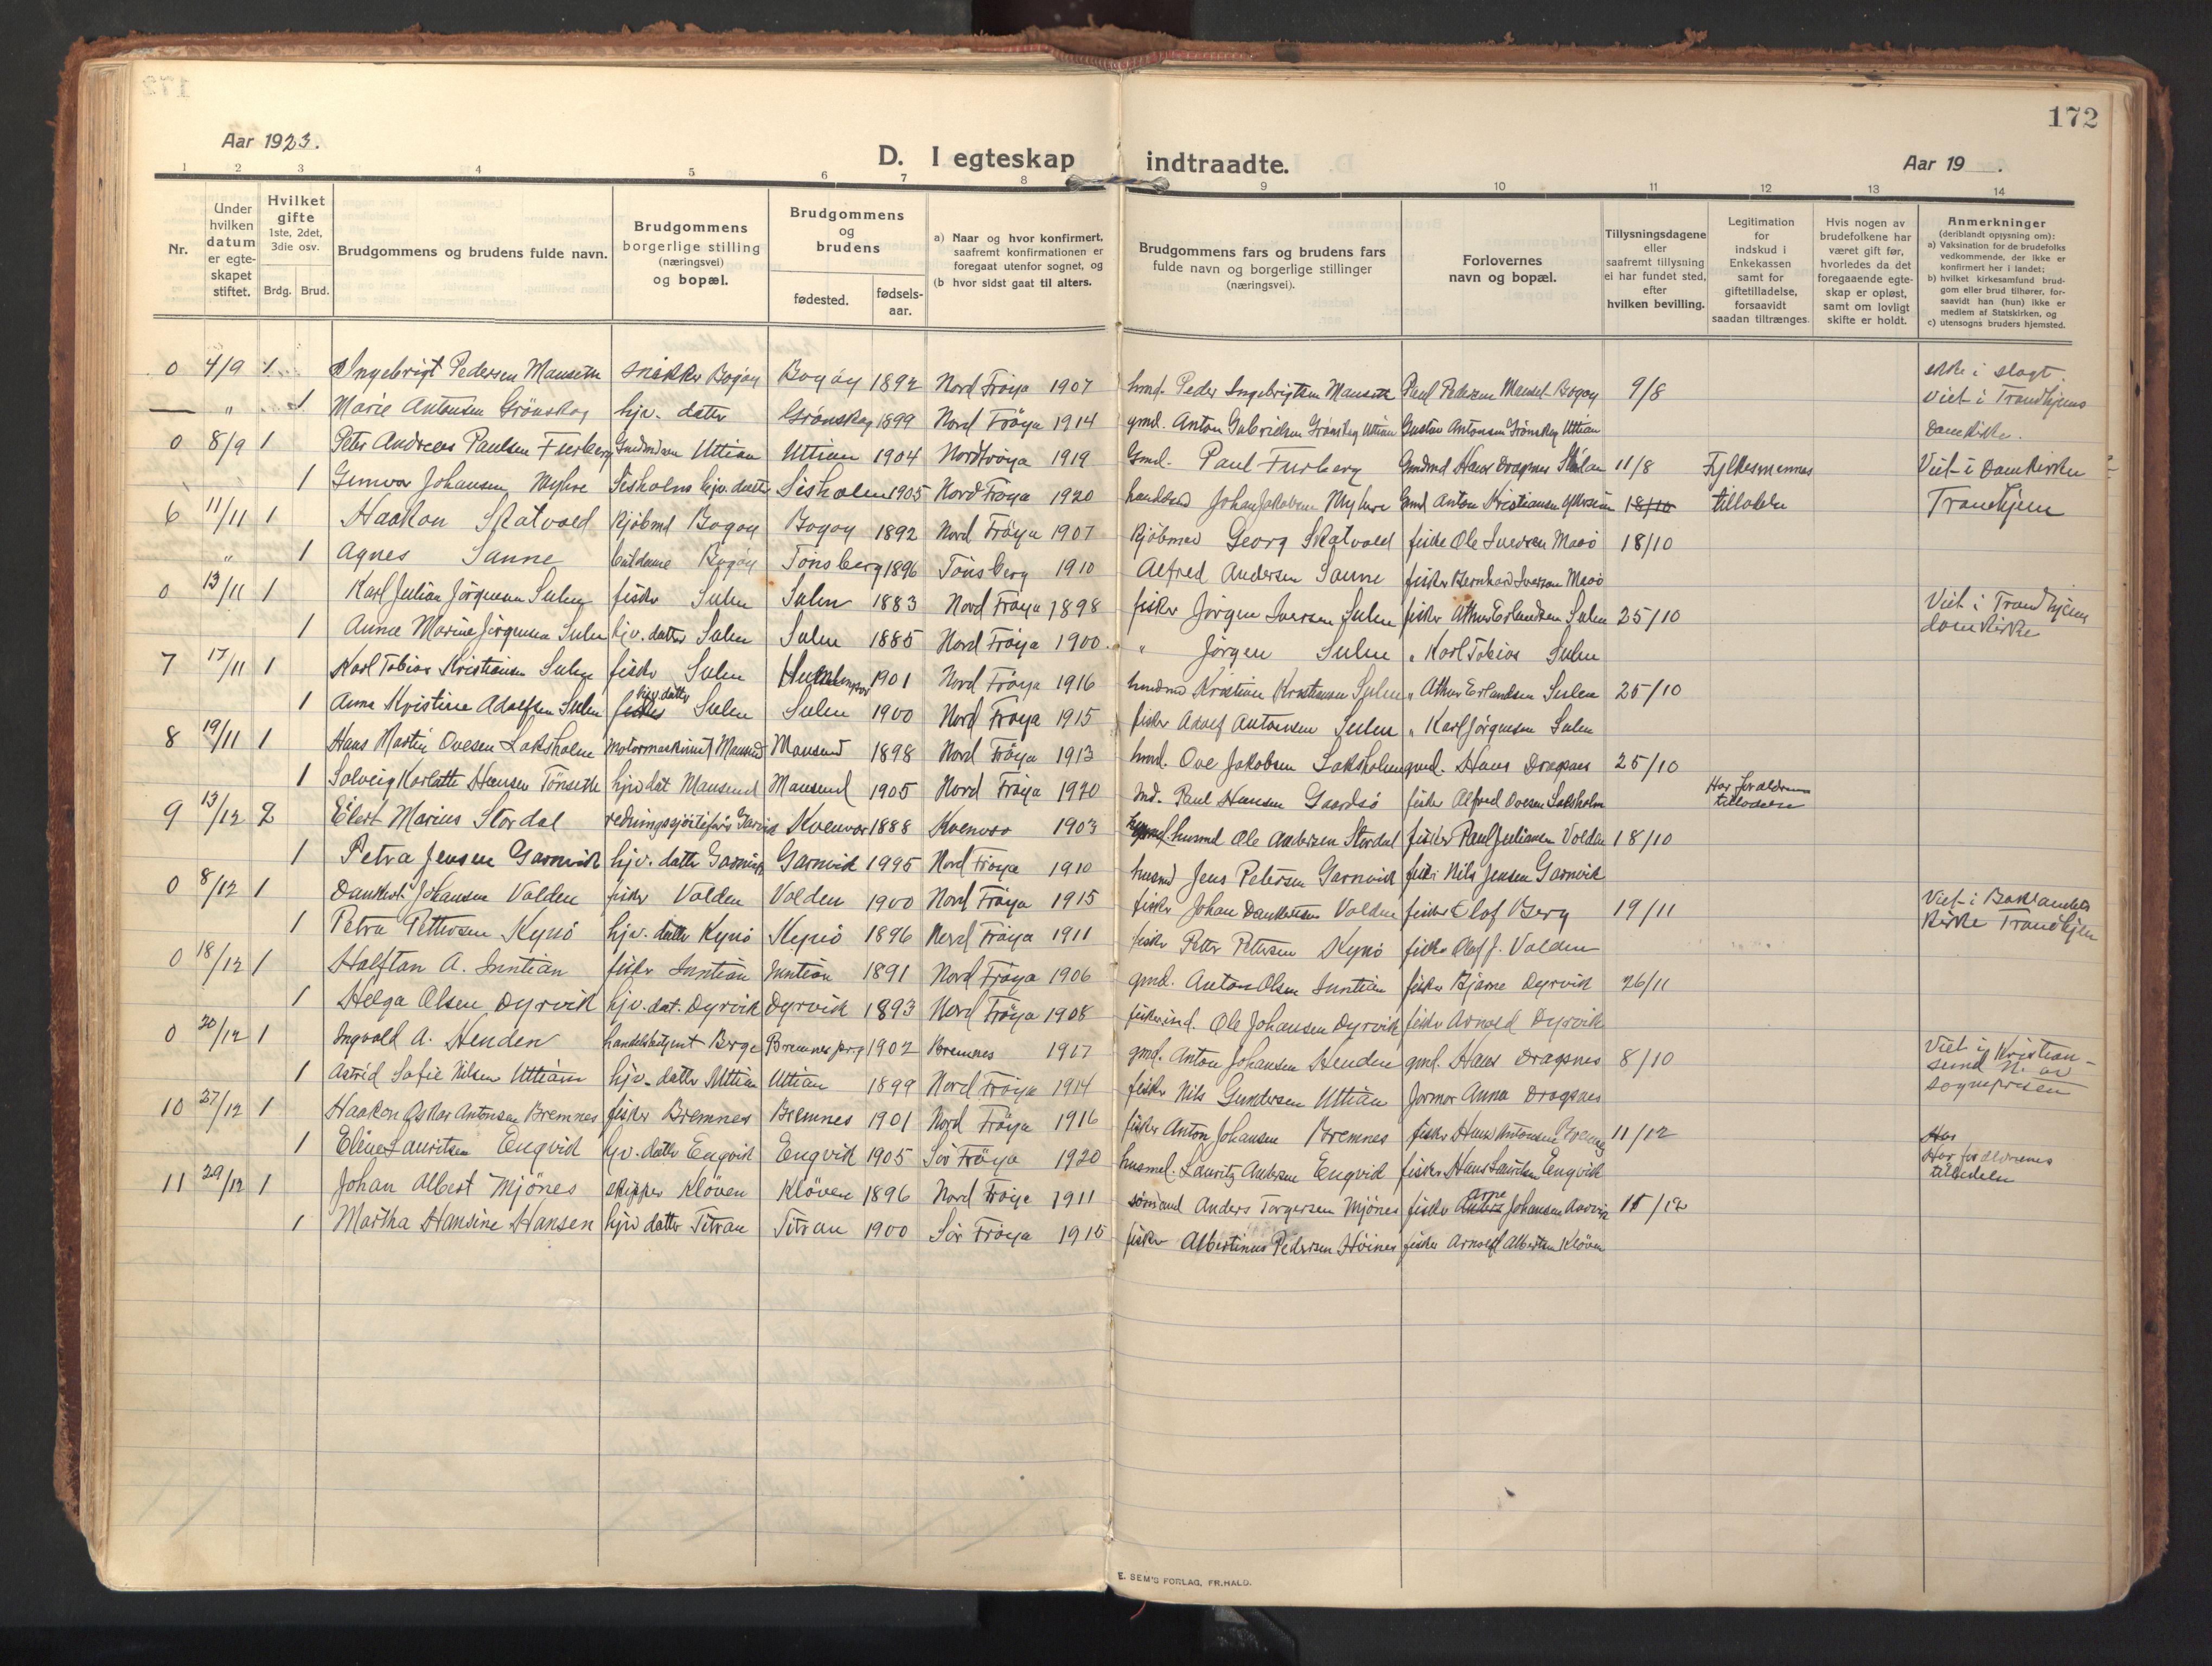 172
Aar 1923.
D. I egteskap indtraadte.
Aar 19 .
1 2 3 4 5 6 7 8 9 10 11 12 13 14
Nr.
Under hvilken datum er egte-skapet stiftet.
Hvilket gifte 1ste, 2det, 3die osv.
Brdg. Brud.
Brudgommens og brudens fulde navn.
Brudgommens borgerlige stilling (næringsvei) og bopæl.
Brudgommens og brudens
fødested. fødsels-aar.
a) Naar og hvor konfirmert, saafremt konfirmationen er foregaat utenfor sognet, og
(b hvor sidst gaat til alters.
Brudgommens fars og brudens fars fulde navn og borgerlige stillinger (næringsvei).
Forlovernes navn og bopæl.
Tillysningsdagene eller saafremt tillysning ei har fundet sted, efter hvilken bevilling.
Legitimation for indskud i Enkekassen samt for giftetilladelse, forsaavidt saadan tiltrænges.
Hvis nogen av brudefolkene har været gift før, hvorledes da det foregaaende egte-skap er opløst, samt om lovligt skifte er holdt.
Anmerkninger (deriblandt opysning om):
a) Vaksination for de brudefolks vedkommende, der ikke er konfirmert her i landet;
b) hvilket kirkesamfund brud-gom eller brud tilhører, for-saavidt han (hun) ikke er medlem af Statskirken, og
c) utensogns bruders hjemsted.
0 4/9 1 Ingebrigt Pedersen Mauseth snikker Bogøy Bogøy 1892 Nord Frøya 1907 hmd. Peder Ingebrigtsen Mauseth Paul Pedersen Mauset Bogøy 9/8 ikke i slagt.
— " 1 Marie Antonsen Grönskag hjv. datter Grönskag 1899 Nord Fröya 1914 gmd. Anton Gabrielsen Grönskag Uttian Gustav Antonsen Grönskag Uttian Viet i Trondhjems Domkirke.
0 8/9 1 Peter Andreas Paulsen Furberg Uttian Uttian 1904 Nordfröya 1919 Gmd. Paul Furberg Hans Dragsnes 11/8 Fylkesmennes Viet i Domkirken
1 Gunvor Johansen Myhre Sisholm hjv. datter Sisholm 1905 Nord Fröya 1920 Johan Jakobsen Myhre Gmd Anton Kristiansen 18/10 tilladelse Trondhjem
6 11/11 1 Haakon Skatvold Kjöbmd Bogøy Bogøy 1892 Nord Fröya 1907 Kjöbmd Georg Skatvold fisker Ole Iversen Masö 18/10
" 1 Agnes Sanne Bogøy Tönsberg 1896 Tönsberg 1910 Alfred Andersen Sanne fisker Bernhard Iversen Masö
0 13/11 1 Karl Julian Jörgensen Sulen fisker Sulen Sulen 1883 Nord Fröya 1898 fisker Jörgen Iversen Sulen fisker Athur Erlandsen Sulen 25/10 Viet i Trondhjems domkirke
1 Anna Marine Jörgensen Sulen hjv. datter Sulen Sulen 1885 Nord Fröya 1900. " Jörgen Sulen " Karl Tobias Sulen
7 17/11 1 Karl Tobias Kristiansen Sulen fisker Sulen 1901 Nord Fröya 1916 husmd Kristian Kristiansen Sulen " Athur Erlandsen Sulen 25/10
1 Anna Kristine Adolfsen Sulen hjv. datter fisker Sulen Sulen 1900 Nord Fröya 1915 fisker Adolf Antonsen Sulen " Karl Jörgensen Sulen
8 19/11 1 Hans Martin Ovesen Laksholm motormaskinist Mausund Mausund 1898 Nord Fröya 1913 hmd. Ove Jakobsen Laksholm gmd. Hans Dragsnes 25/10
1 Solveig Karlotte Hansen Tönseth hjv dat Mausund Mausund 1905 Nord Fröya 1920 Paul Hansen Gaardsö fisker Alfred Ovesen Laksholm Har forældrenes tilladelse
9 13/12 2 Eilert Marius Stordal redningsskjöitefører Garnvik Kvenvær 1888 Kvenvær 1903 husmd Ole Andersen Stordal fisker Paul Juliansen Volden 18/10
1 Petra Jensen Garnvik hjv. datter Garnvik Garnvik 1995 Nord Fröya 1910 husmd Jens Petersen Garnvik fisker Nils Jensen Garnvik
0 8/12 1 Dankert Johansen Valden fisker Valden Valden 1900 Nord Fröya 1915 fisker Johan Dankertsen Valden fisker Olof Berg 19/11 Viet i Baklandets Kirke Trondhjem
1 Petra Pettersen Kynö hjv. datter Kynö Kynö 1896 Nord Fröya 1911 fisker Petter Petersen Kynö fisker Olaf J. Valden
0 18/12 1 Halftan A. Inntian fisker Inntian Inntian 1891 Nord Fröya 1906 gmd. Anton Olsen Inntian fisker Bjarne Dyrvik 26/11
1 Helga Olsen Dyrvik hjv. dat. Dyrvik Dyrvik 1893 Nord Fröya 1908 fisker Ole Johansen Dyrvik fisker Arnold Dyrvik
0 20/12 1 Ingvald A. Henden handelsbetjent Berge Bremnes prg 1902 Bremnes 1917 gmd. Anton Johansen Henden gmd. Hans Dragsnes 8/10 Viet i Kristian-sund N. av sognepresten
1 Astrid Sofie Nilsen Uttian hjv. datter Uttian Uttian 1899 Nord Fröya 1914 fisker Nils Gundersen Uttian Jormor Anna Dragsnes
10 27/12 1 Haakon Oskar Antonsen Bremnes fisker Bremnes Bremnes 1901 Nord Fröya 1916 fisker Anton Johansen Bremnes fisker Hans Antonsen 11/12 Har
1 Eline Lauritsen Engvik hjv. datter Engvik Engvik 1905 Sör Fröya 1920 husmd. Lauritz Andersen Engvik fisker Hans Lauritsen Engvik Har forældrenes tilladelse
11 29/12 1 Johan Albert Mjönes skipper Klöven Klöven 1896 Nord Fröya 1911 sömand Anders Torgersen Mjönes fisker Arne Johansen 15/12
1 Martha Hansine Hansen hjv datter Titran Titran 1900 Sör Fröya 1915 fisker Albertinus Pedersen Höines fisker Arnolf Albertsen Klöven
E. SEM'S FORLAG, FR.HALD.